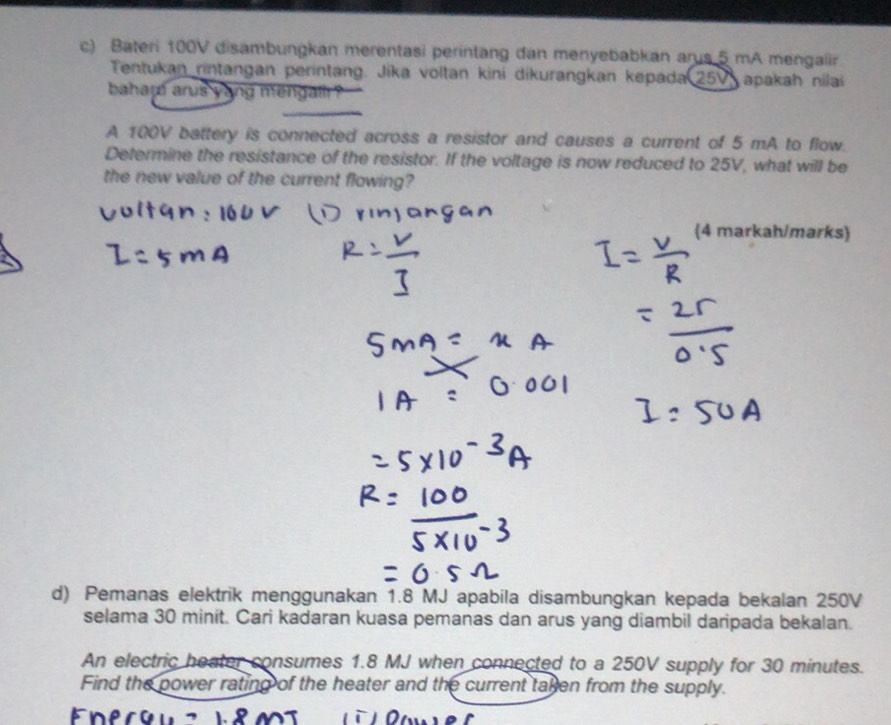 c) Bateri 100V disambungkan merentasi perintang dan menyebabkan arus 5 mA mengalir.
Tentukan rintangan perintang. Jika voltan kini dikurangkan kepada 25V, apakah nilai
baharu arus yang mengalir?
A 100V battery is connected across a resistor and causes a current of 5 mA to flow.
Determine the resistance of the resistor. If the voltage is now reduced to 25V, what will be
the new value of the current flowing?
(4 markah/marks)
voltan : 100 V
I = 5 mA
(i) rintangan
R = V
I
5 mA = x A
1 A = 0.001
= 5 x 10 -3 A
R = 100
5 x 10 -3
= 0.5 Ω
I = V
R
= 25
0.5
I = 50 A
d) Pemanas elektrik menggunakan 1.8 MJ apabila disambungkan kepada bekalan 250V
selama 30 minit. Cari kadaran kuasa pemanas dan arus yang diambil daripada bekalan.
An electric heater consumes 1.8 MJ when connected to a 250V supply for 30 minutes.
Find the power rating of the heater and the current taken from the supply.
Energy = 1.8 MJ (i) Power